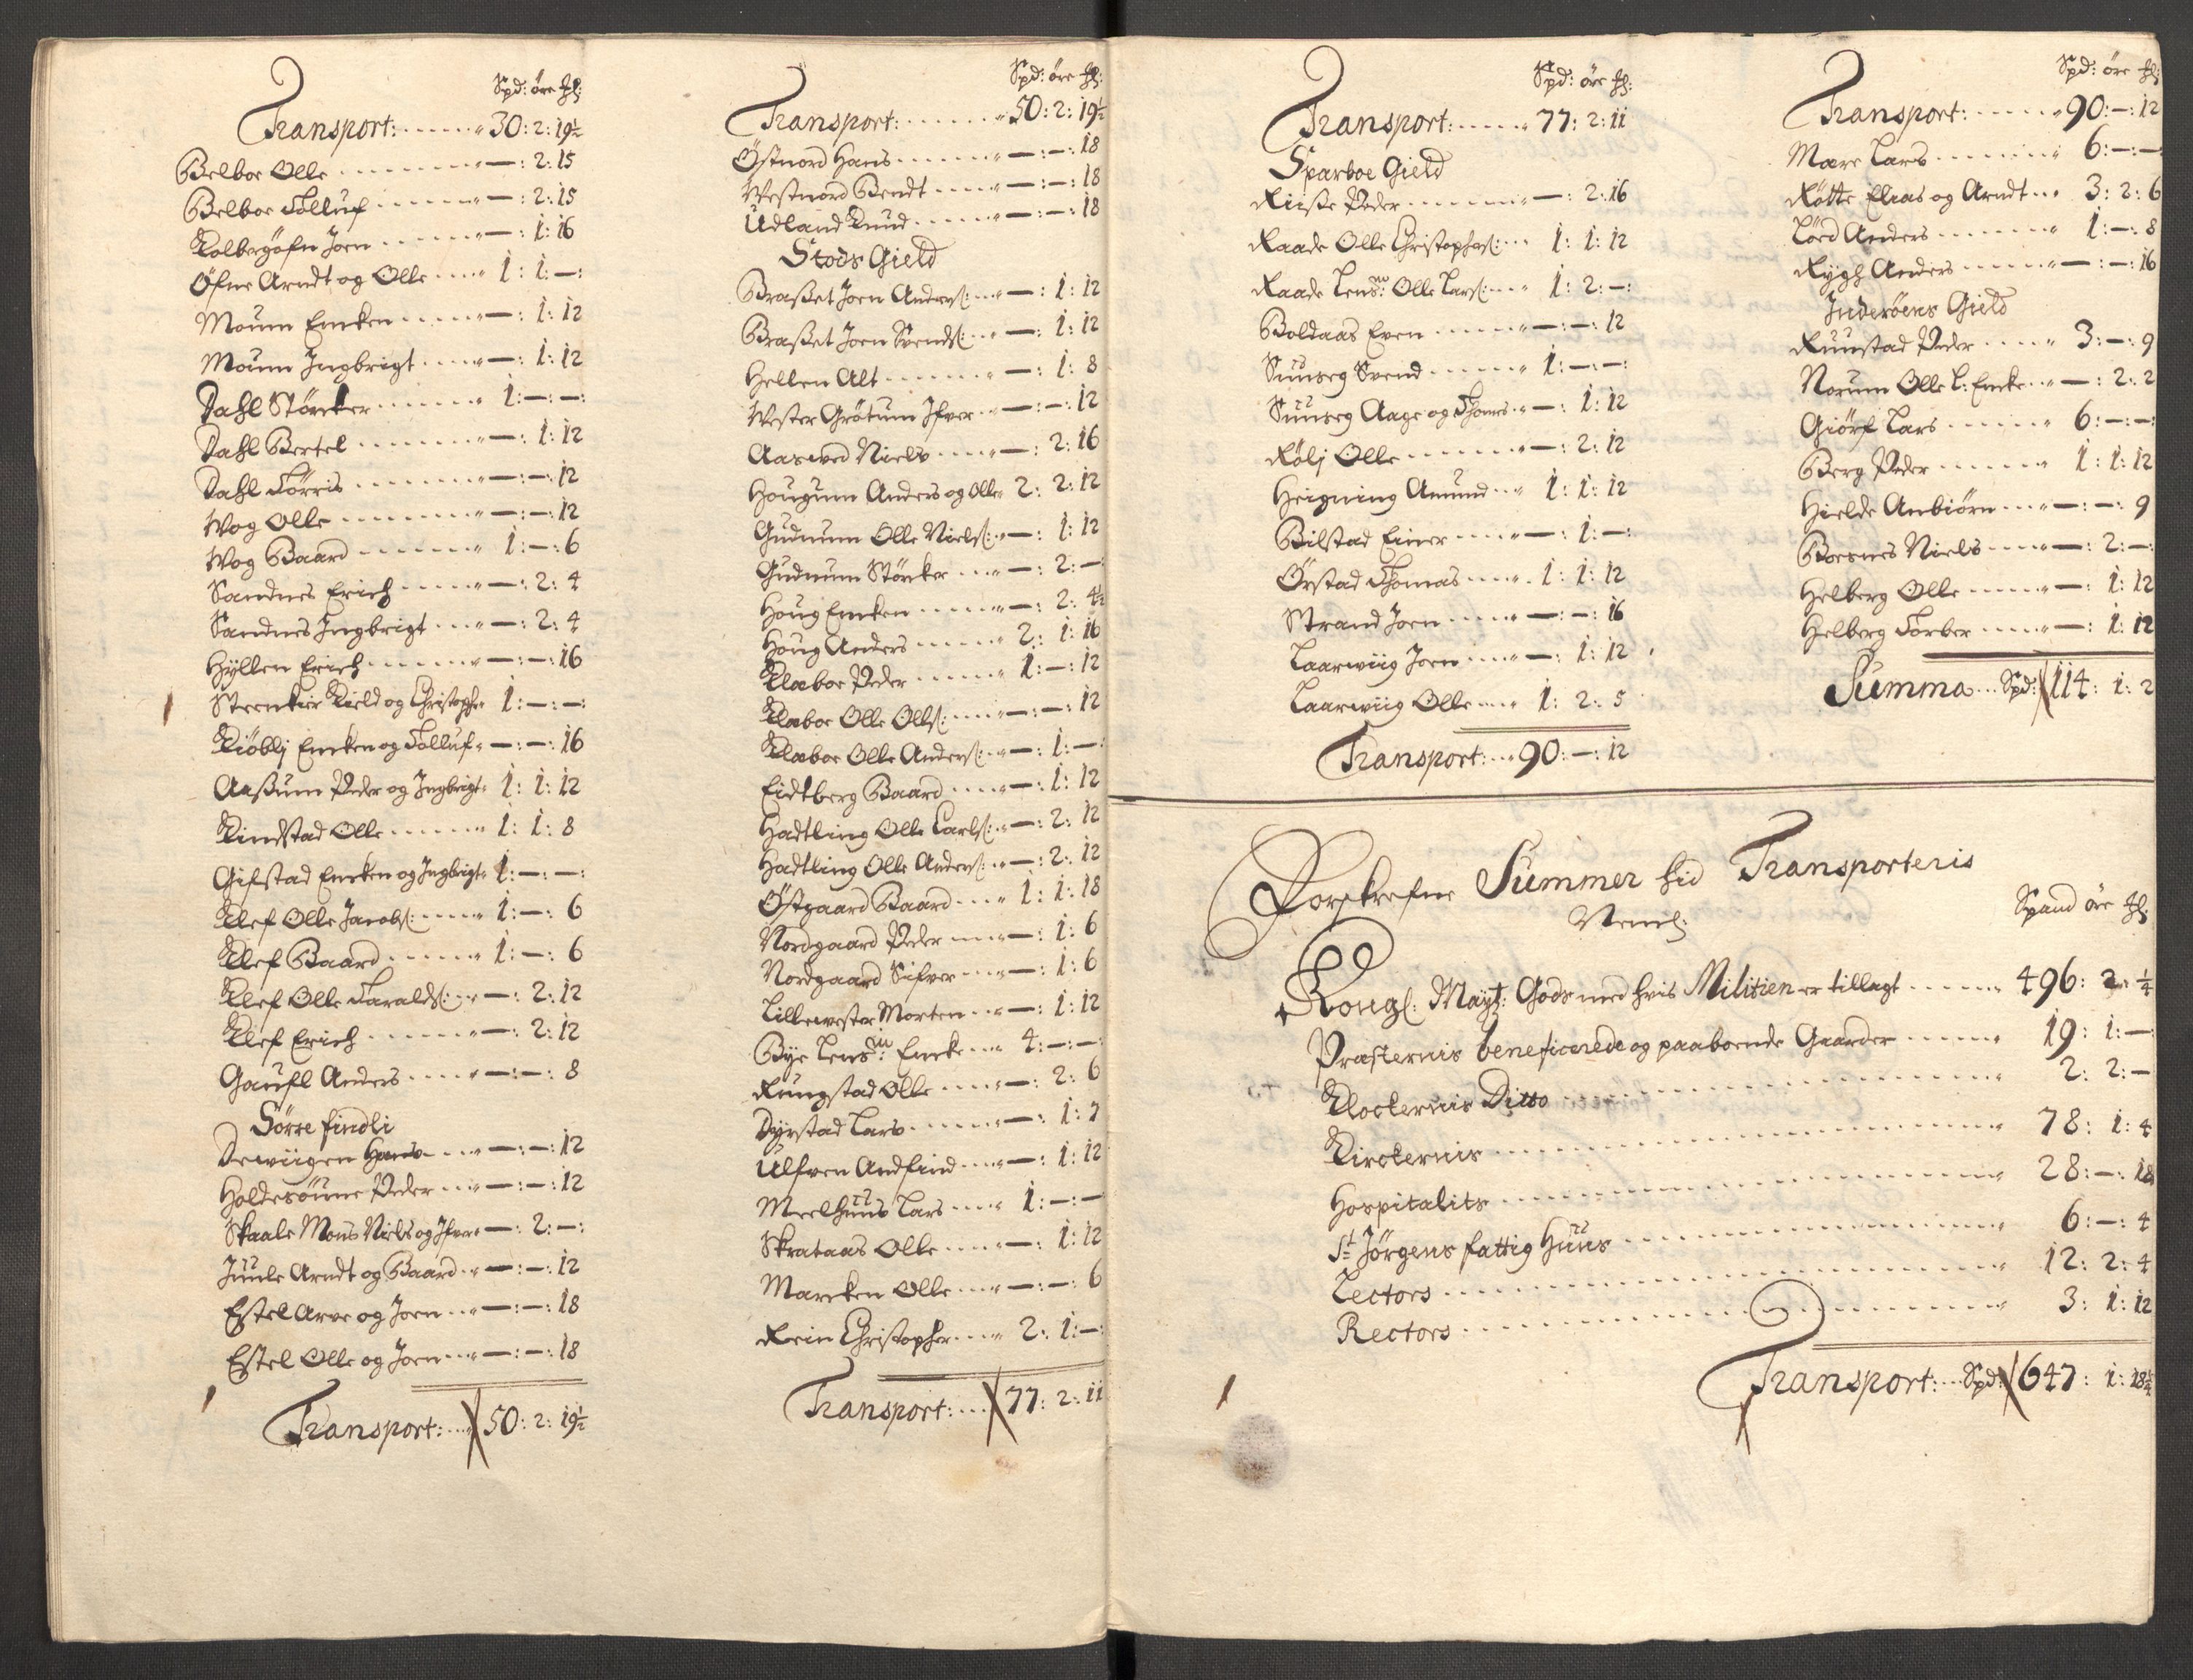 Spd: öre
Transport: 30: 2: 19½
Belboe Olle —: 2: 15
Belboe Tolluf —: 2: 15
Kolbergöfn Joen —: 1: 16
Öfne Arndt og Olle 1: 1: —:
Moum Encken —: 1: 12
Moum Ingbrigt —: 1: 12
Dahl Störcker 1: —: —:
Dahl Bertel —: 1: 12
Dahl Törris —: —: 12
Wog Olle —: —: 12
Wog Baard 1: —: 6
Sandnes Erich —: 2: 4
Sandnes Ingbrigt —: 2: 4
Hÿllen Erich —: —: 16
Steenkier Kield og Christopher 1: —: —:
Kiöblj Encken og Tolluf —: —: 16
Aassum Peder og Ingbrigt 1: 1: 12
Kindstad Olle 1: 1: 8
Gifstad Encken og Ingbrigt 1: —: —:
Klef Olle Jacobs: 1: —: 6
Klef Baard 1: —: 6
Klef Olle Taralds: —: 2: 12
Klef Erich —: 2: 12
Gaufl Anders —: —: 8
Sörre findli
Dewiigen Hans —: —: 12
Holdesöüne Peder —: —: 12
Skaale Mons Niels og Ifver —: 2: —:
Juule Arndt og Baard —: —: 12
Estel Arve og Joen —: —: 18
Estel Olle og Joen —: —: 18
Transport: 50: 2: 19½
Spd: öre
Transport: 50: 2: 19½
Östnord Hans —: —: 18
Westnord Bendt —: —: 18
Udland Knud —: —: 18
Stods Gield
Brasset Joen Anders: —: 1: 12
Brasset Joen Svends: —: 1: 12
Hellen Alt —: 1: 8
Wester Grötum Ifver —: —: 12
Aasewed Niels —: 2: 16
Hougum Anders og Olle 2: 2: 12
Gudmum Olle Niels: —: 1: 12
Gudmum Störcker —: 2: —:
Houg Encken —: 2: 4½
Houg Anders 2: 1: 16
Klaboe Peder 1: —: 12
Klaboe Olle Olls: —: —: 12
Klaboe Olle Anders: —: 1: —:
Eidtberg Baard —: 1: 12
Hadtling Olle Carls: —: 2: 12
Hadtling Olle Anders: —: 2: 12
Östgaard Baard 1: 1: 18
Nordgaard Peder —: 1: 6
Nordgaard Sifver —: 1: 6
Lillewester Morten —: 1: 12
Bye Lensm: Encke 4: —: —:
Rungstad Olle —: 2: 6
Dyrstad Lars —: 1: 7
Ulfven Andfind —: 1: 12
Meelhuus Lars 1: —: —
Skrataas Olle —: 1: 12
Marcken Olle —: —: 6
Rein Christopher 2: 1: —:
Transport: 77: 2: 11
Spd: öre
Transport: 77: 2: 11
Sparboe Gield
Riisse Peder —: 2: 16
Raade Olle Christophers: 1: 1: 12
Raade Lensm: Olle Lars: 1: 2: —:
Boldaas Even —: —: 12
Suuseg Svend 1: —: —:
Suuseg Aage og Thomes —: 1: 12
Rölj Olle —: 2: 12
Heigning Amund 1: 1: 12
Bilstad Einer —: 1: —:
Örstad Thomas 1: 1: 12
Strand Joen —: —: 16
Laarwiig Joen —: 1: 12
Laarwiig Olle 1: 2: 5
Transport: 90: —: 12
Spd: öre
Transport: 90: —: 12
Mare Lars 6: —: —
Rötte Elias og Arndt 3: 2: 6
Lörd Anders 1: —: 8
Rygh Anders —: —: 16
Inderöens Gield
Ruustad Peder 3: —: 9
Norum Olle L: Encke —: 2: 2
Giörf Lars 6: —: —:
Berg Peder 1: 1: 12
Hielde Anbiörn —: —: 9
Boesnes Niels —: 2: —:
Helberg Olle —: 1: 12
Helberg Torber —: 1: 12
Summa Spd: 114: 1: 2
Forskrefne Summer hid Transporteris
Neml:
Spand öre
Kongl: Mayt: Gods med hvis Militien er tillagt 496: 2: ¼
Præsternis beneficerede og paaboende Gaarder 19: 1: —
Klockernis Ditto 2: 2: —
Kirckernis 78: 1: 4
Hospitalits 28: —: 18
St Jörgens fattig Huus 6: —: 4
Lectors 12: 2: 4
Rectors 3: 1: 12
Transport: Spd: 647: 1: 18¼